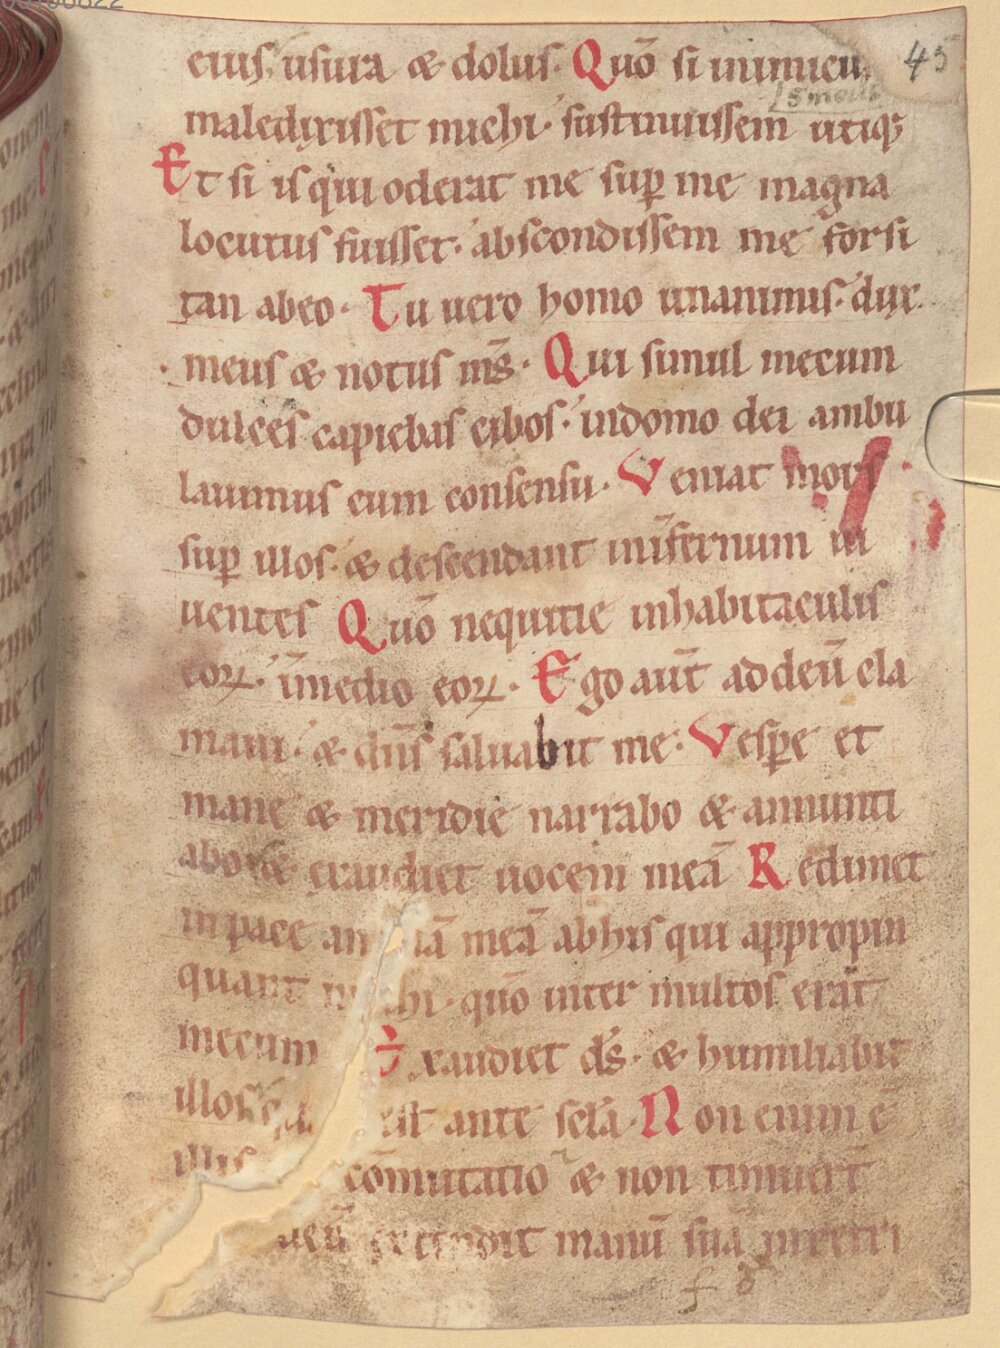 eius, usura & dolus. Quō si inimicu
45
maledixisset michi. sustinuissem utiq;
Et si is qui oderat me sup me magna
locutus fuisset. abscondissem me forsi
tan ab eo. Tu vero homo unanimis. dux
meus & notus ms̄. Qui simul mecum
dulces capiebas cibos. in domo dei ambu
lauimus cum consensu. Veniat mors
sup illos. & descendant in īfernum ui
uentes Quō nequitie in habitaculis
eoꝝ. ī medio eoꝝ. Ego aut̄ ad deū cla
maui. & dn̄s saluabit me. Vespe et
mane & meridie narrabo & annunti
abo & exaudiet uocem meā Redimet
in pace meā ab his qui appropin
quant quō inter multos erāt
mecum Exaudiet ds̄. & humiliabit
illos ante scl̄a. Non enim ē
illis cōmutatio & non timuer̄t
deū extendit manū suā in retri